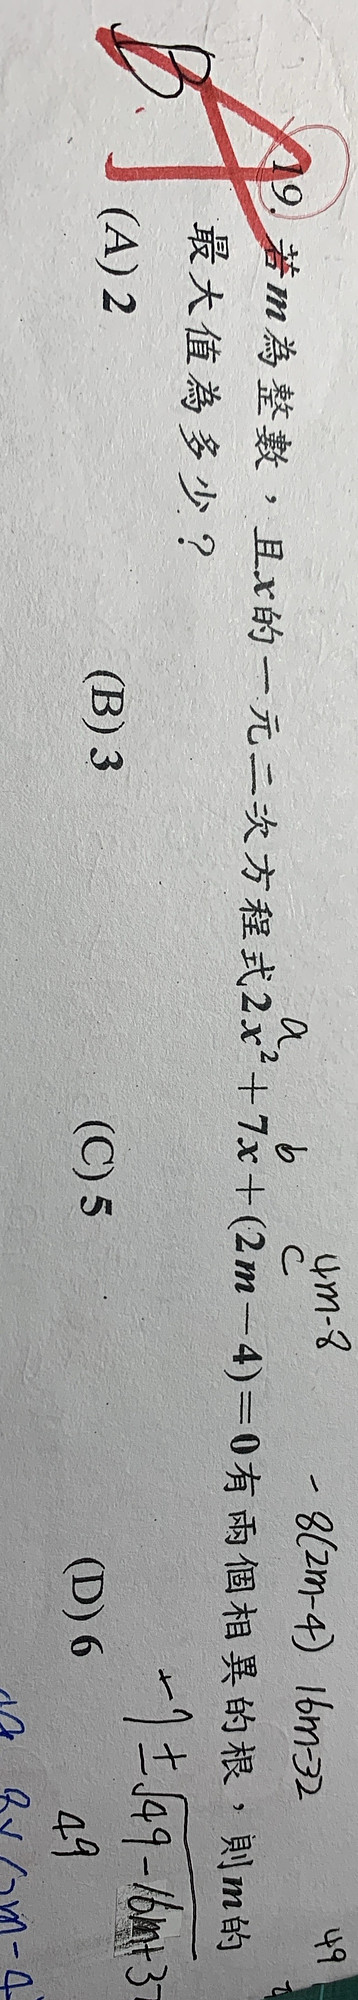 B
19. 若m為整數，且x的一元二次方程式2x²+7x+(2m-4)=0有兩個相異的根，則m的
最大值為多少？
(A) 2 (B) 3 (C) 5 (D) 6
a b c
4m-8
-8(2m-4) 16m-32
49
-7±√49-16m+32
49